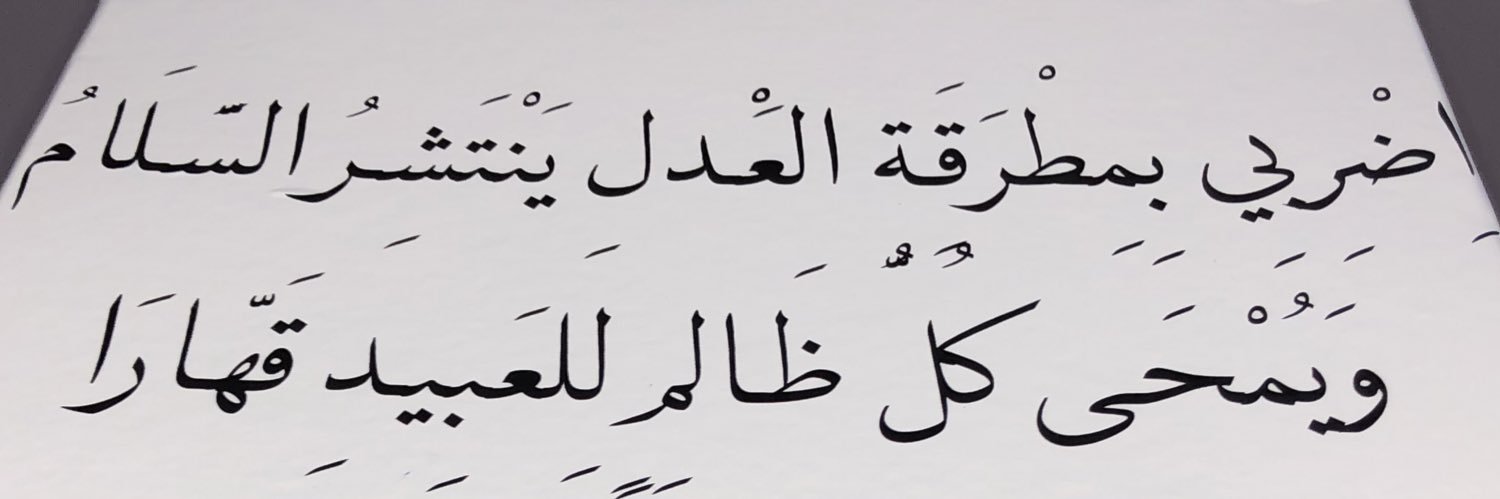 اِضْرِبِي بِمِطْرَقَةِ الْعَدلِ يَنْتَشِرُ السَّلَامُ
وَيُمْحَى كُلُّ ظَالِمٍ لِلعَبِيدِ قَهَّارَا